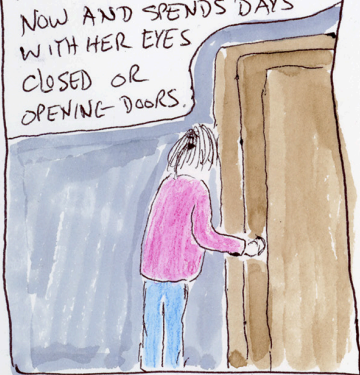 NOW AND SPENDS DAYS
WITH HER EYES
CLOSED OR
OPENING DOORS.